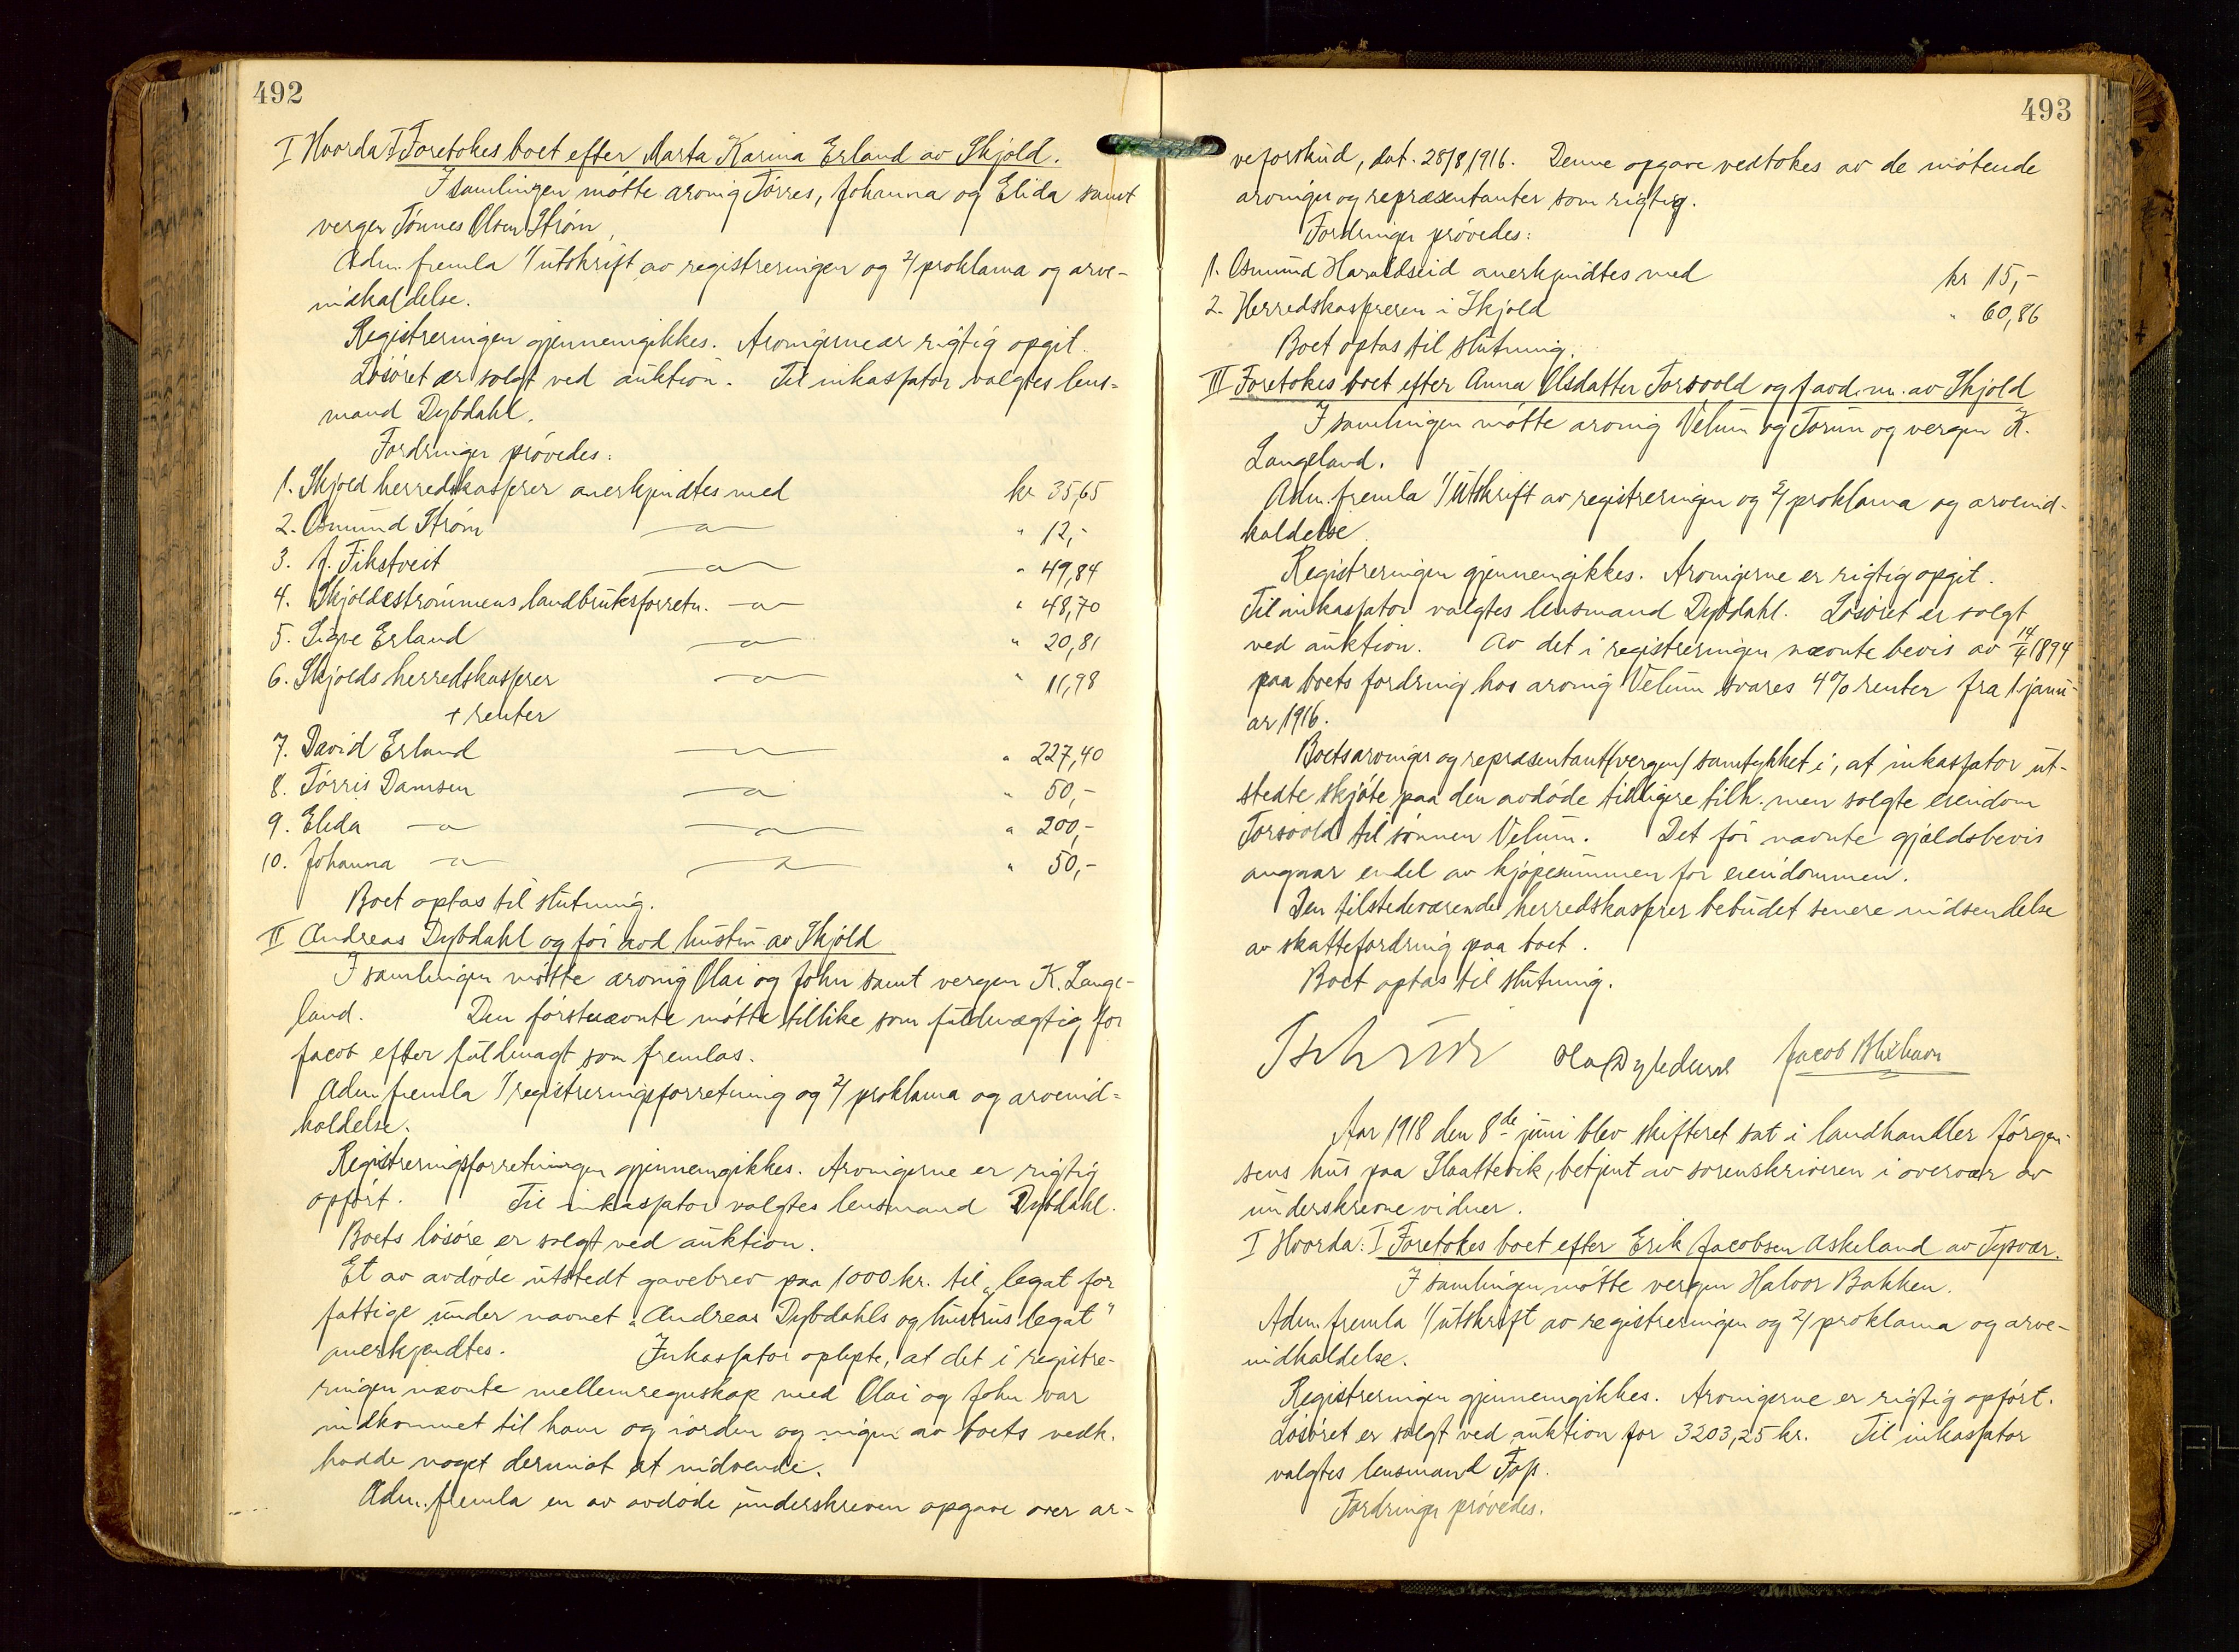 492
I Hvorda I Foretokes boet efter Marta Karina Erland av Skjold.
I samlingen møtte arving Tørres, Johanna og Elida samt
vergen Tønnes Olsen Strøm,
Adm. fremla 1/ utskrift av registreringen og 2/ proklama og arve-
indkaldelse.
Registreringen gjennemgikkes. Arvingerne er rigtig opgit.
Løsøret er solgt ved auktion. Til inkassator valgtes lens-
mand Dybdahl.
Fordringer prøvedes:
1. Skjold herredskasserer anerkjendtes med kr 35,65
2. Osmund Strøm —"— " 12,-
3. J. Fikstveit —"— " 49,84
4. Skjoldestrømmens landbruksforretn. —"— " 48,70
5. Sigve Erland —"— " 20,81
6. Skjolds herredskasserer —"— " 11,98
+ renter
7. David Erland —"— " 227,40
8. Tørris Damsen —"— " 50,-
9. Elida —"— —"— " 200,-
10. Johanna —"— —"— " 50,-
Boet optas til slutning.
II Andreas Dybdahl og før avd. hustru av Skjold
I samlingen møtte arving Olai og John samt vergen K. Lange-
land. Den førstnævnte møtte tillike som fuldmægtig for
Jacob efter fuldmagt som fremlas.
Adm. fremla 1/ registreringsforretning og 2/ proklama og arveind-
kaldelse.
Registreringsforretningen gjennemgikkes. Arvingerne er rigtig
opført. Til inkassator valgtes lensmand Dybdahl.
Boets løsøre er solgt ved auktion.
Et av avdøde utstedt gavebrev paa 1000 kr. til "legat for
fattige under navnet "Andreas Dybdahls og hustrus legat"
anerkjendtes. Inkassator oplyste, at det i registre-
ringen nævnte mellemregnskap med Olai og John var
indkommet til ham og iorden og ingen av boets vedk.
hadde noget derimot at indvende.
Adm. fremla en av avdøde underskreven opgave over ar-
493
veforskud, dat. 28/8 1916. Denne opgave vedtokes av de møtende
arvinger og repræsentanter som rigtig.
Fordringer prøvedes:
1. Osmund Haraldseid anerkjendtes med kr 15,-
2. Herredskassereren i Skjold " 60,86
Boet optas til slutning.
III Foretokes boet efter Anna Olsdatter Torsvold og f. avd. m. av Skjold
I samlingen møtte arving Velum og Torun og vergen K.
Langeland.
Adm. fremla 1/ utskrift av registreringen og 2/ proklama og arveind-
kaldelse.
Registreringen gjennemgikkes. Arvingerne er rigtig opgit.
Til inkassator valgtes lensmand Dybdahl. Løsøret er solgt
ved auktion. Av det i registreringen nævnte bevis av 14/4 1894
paa boets fordring hos arving Velum svares 4% renter fra 1. janu-
ar 1916.
Boets arvinger og repræsentant (vergen) samtykket i, at inkassator ut-
stedte skjøte paa den avdøde tidligere tilh. men solgte eiendom
Torsvold til sønnen Velum. Det før nævnte gjældsbevis
angaar endel av kjøpesummen for eiendommen.
Den tilstedeværende herredskasserer bebudet senere indsendelse
av skattefordring paa boet.
Boet optas til slutning.
Jacob Blikhavn
Aar 1918 den 8de juni blev skifteret sat i landhandler Jørgen-
sens hus paa Slaattevik, betjent av sorenskriveren i overvær av
underskrevne vidner.
I Hvorda: I Foretokes boet efter Erik Jacobsen Askeland av Tysvær.
I samlingen møtte vergen Halvor Bakken.
Adm. fremla 1/ utskrift av registreringen og 2/ proklama og arve-
indkaldelse.
Registreringen gjennemgikkes. Arvingerne er rigtig opført.
Løsøret er solgt ved auktion for 3203,25 kr. Til inkassator
valgtes lensmand Fos.
Fordringer prøvedes.